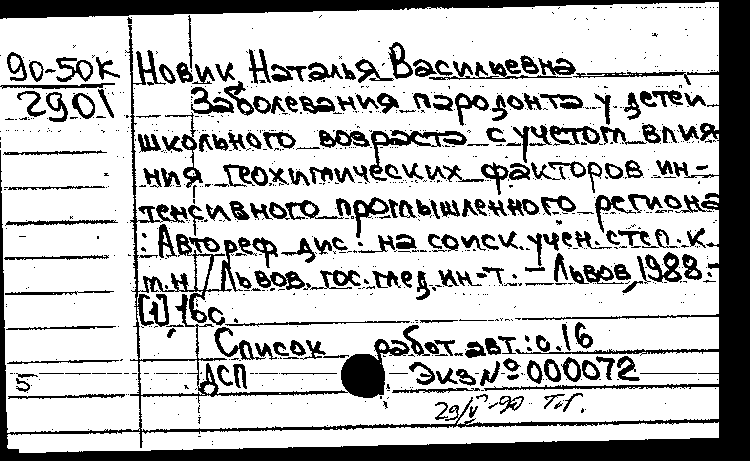 90-50К Новик, Наталья Васильевна
2901 Заболевания пародонта у детей
школьного возраста с учетом влия-
ния геохимических факторов ин-
тенсивного промышленного региона
: Автореф. дис. на соиск. учен. степ. к.
м.н / Львов. гос. мед. ин-т. - Львов, 1988. -
[1] 16с.
Список работ авт.: с. 16
5 ДСП Экз № 000072
29/V-90